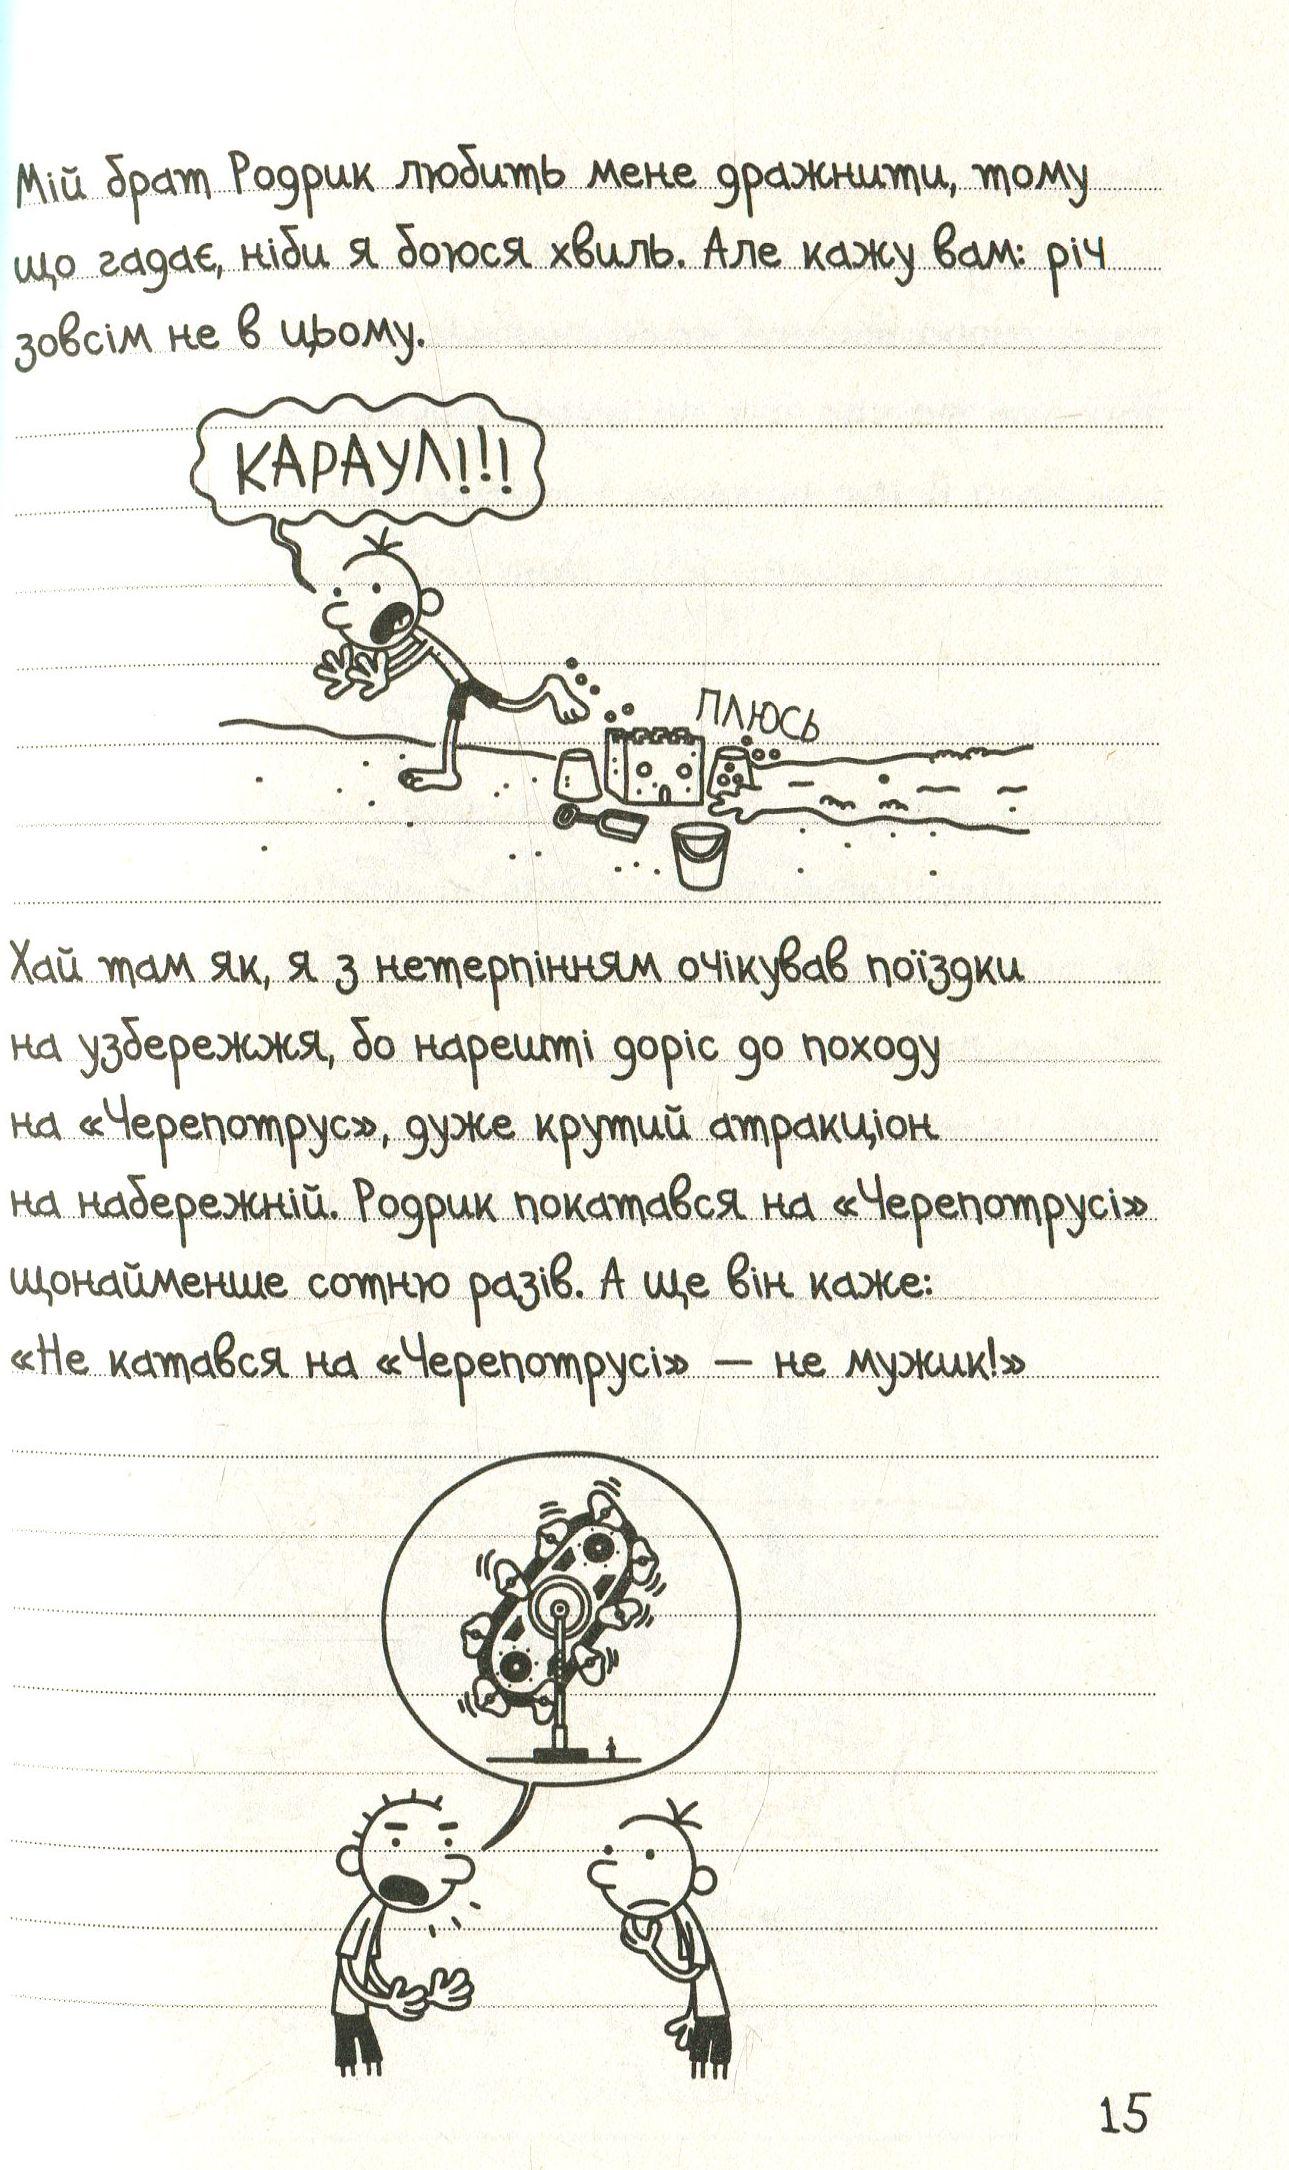 Мій брат Родрик любить мене дражнити, тому
що гадає, ніби я боюся хвиль. Але кажу вам: річ
зовсім не в цьому.
КАРАУЛ!!!
ПЛЮСЬ
Хай там як, я з нетерпінням очікував поїздки
на узбережжя, бо нарешті доріс до походу
на «Черепотрус», дуже крутий атракціон
на набережній. Родрик покатався на «Черепотрусі»
щонайменше сотню разів. А ще він каже:
«Не катався на «Черепотрусі» — не мужик!»
15